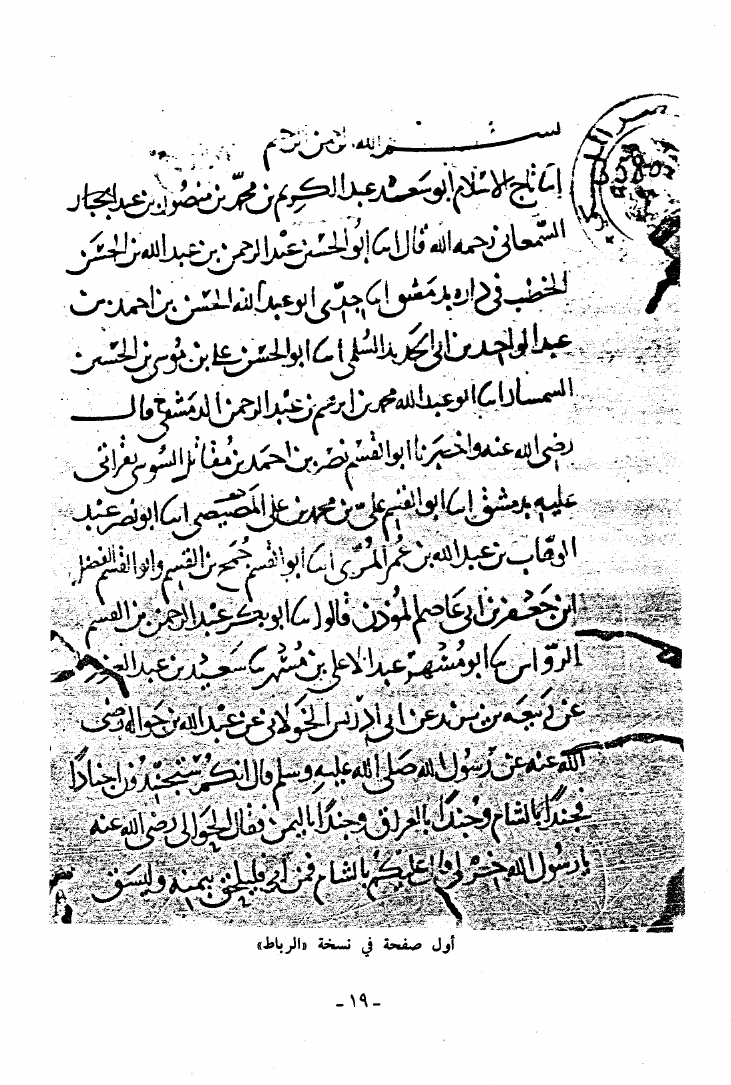 بسم الله الرحمن الرحيم
انبا تاج الاسلام ابو سعيد عبد الكريم بن محمد بن منصور بن عبد الجبار
السمعاني رحمه الله قال انبا ابو الحسين عبد الرحمن بن عبد الله بن الحسن
الخطيب في داره بدمشق انبا جدي ابو عبد الله الحسن بن احمد بن
عبد الواحد بن ابي الحديد السلمي انبا ابو الحسن علي بن موسى بن الحسين
السمسار انبا ابو عبد الله محمد بن ابرهيم بن عبد الرحمن الدمشقي قال
رضي الله عنه واخبرنا ابو القسم نصر بن احمد بن مقاتل السوسي بقراتي
عليه بدمشق انبا ابو القسم علي بن محمد بن علي المصيصي انبا ابو نصر عبد
الوهاب بن عبد الله بن عمر المري انبا ابو القسم جمح بن القسم وابو القسم الفضل
ابن جعفر بن ابي عاصم المؤذن قالوا نبا ابو بكر عبد الرحمن بن القسم
الرواس نبا ابو مسهر عبد الاعلى بن مسهر نبا سعيد بن عبد العزيز
عن ربيعه بن يزيد عن ابي ادريس الخولاني عن عبد الله بن حواله رضي
الله عنه عن رسول الله صلى الله عليه وسلم قال انكم ستجندون اجنادا
فجندا بالشام وجندا بالعراق وجندا باليمن فقال الحوالي رضي الله عنه
يا رسول الله خر لي قال عليكم بالشام فمن ابى فليلحق بيمنه وليسق
أول صفحة في نسخة «الرباط»
- ١٩ -